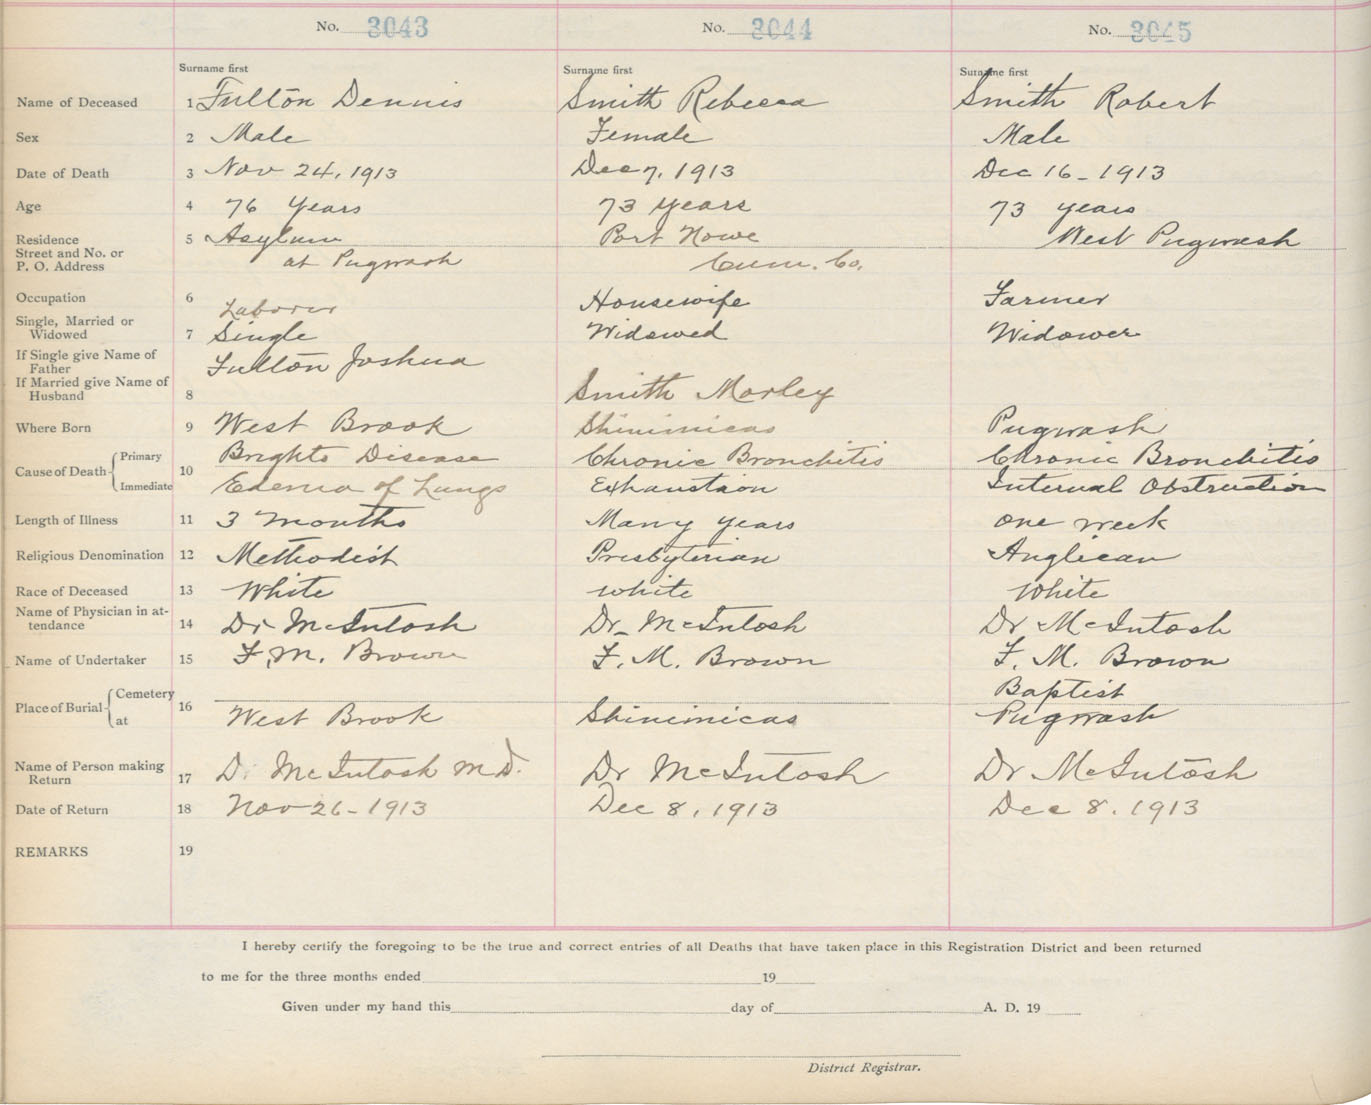 No. 3043 No. 3044 No. 3045
Surname first Surname first Surname first
Name of Deceased 1 Fulton Dennis Smith Rebecca Smith Robert
Sex 2 Male Female Male
Date of Death 3 Nov 24, 1913 Dec 7, 1913 Dec 16 - 1913
Age 4 76 Years 73 years 73 years
Residence 5 Asylum Port Howe West Pugwash
Street and No. or
P. O. Address at Pugwash Cum. Co.
Occupation 6 Laborer Housewife Farmer
Single, Married or
Widowed 7 Single Widowed Widower
If Single give Name of
Father Fulton Joshua
If Married give Name of
Husband 8 Smith Morley
Where Born 9 West Brook Shinimicas Pugwash
Cause of Death 10
Primary Brights Disease Chronic Bronchitis Chronic Bronchitis
Immediate Edema of Lungs Exhaustion Internal Obstruction
Length of Illness 11 3 months Many years one week
Religious Denomination 12 Methodist Presbyterian Anglican
Race of Deceased 13 White white White
Name of Physician in at-
tendance 14 Dr McIntosh Dr. McIntosh Dr McIntosh
Name of Undertaker 15 F. M. Brown F. M. Brown F. M. Brown
Place of Burial 16
Cemetery Baptist
at West Brook Shinimicas Pugwash
Name of Person making
Return 17 D. McIntosh M.D. Dr McIntosh Dr McIntosh
Date of Return 18 Nov 26 - 1913 Dec 8, 1913 Dec 8. 1913
REMARKS 19
I hereby certify the foregoing to be the true and correct entries of all Deaths that have taken place in this Registration District and been returned
to me for the three months ended 19
Given under my hand this day of A. D. 19
District Registrar.